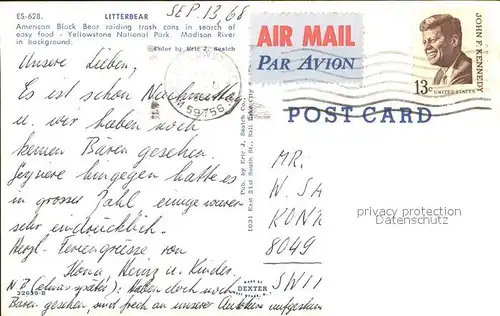 ES-628. LITTERBEAR SEP. 13, 68
American Black Bear raiding trash cans in search of
easy food - Yellowstone National Park. Madison River
in background.
Color by Eric J. Seaich
Unsere Lieben,
Es ist schon Nachmittag
u. wir haben noch
keinen Bären gesehen.
hingegen hatte es
in grosser Zahl, einige waren
sehr eindrücklich.
Herzl. Feriengrüsse von
Ilona, Heinz u. Kinder.
NB (etwas später): Haben doch noch
Bären gesehen, sind frech an unserer
32639-B
Pub. by Eric J. Seaich Co.
1031 East 21st South St., Salt Lake City
MADE BY
DEXTER
59756
AIR MAIL
PAR AVION
JOHN F. KENNEDY
13c
UNITED STATES
POST CARD
MR.
W. SA
KONR
8049
SWII
privacy protection
Datenschutz